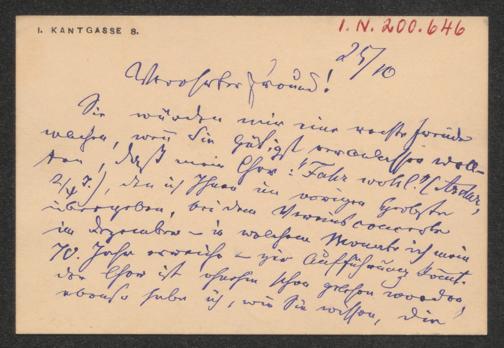 I. KANTGASSE 8.
I. N. 200.646
25/10
Verehrter Freund!
Sie würden mir eine rechte Freude
machen, wenn Sie gütigst veranlassen woll-
ten, daß mein Chor: "Fahr wohl!"
den ich Ihnen im vorigen Herbste
übergeben, bei dem Vereinsconcerte
im Dezember – in welchem Monate ich mein
70. Jahr erreiche – zur Aufführung kömt.
der Chor ist ohnehin schon gelesen worden,
ebenso habe ich, wie Sie wissen, die